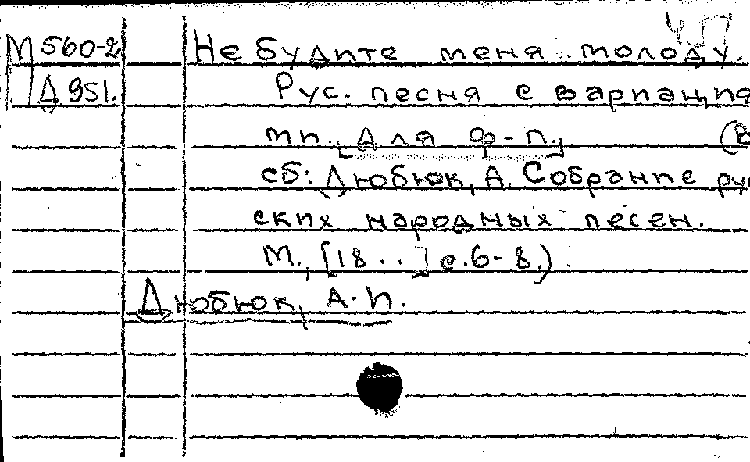 М 560-2 Не будите меня молоду.
Д 951. Рус. песня с вариация
ми. [Для ф-п.] (В
сб: Дюбюк, А. Собрание рус
ских народных песен.
М., [18 . . ] с. 6-8.)
Дюбюк, А. И.